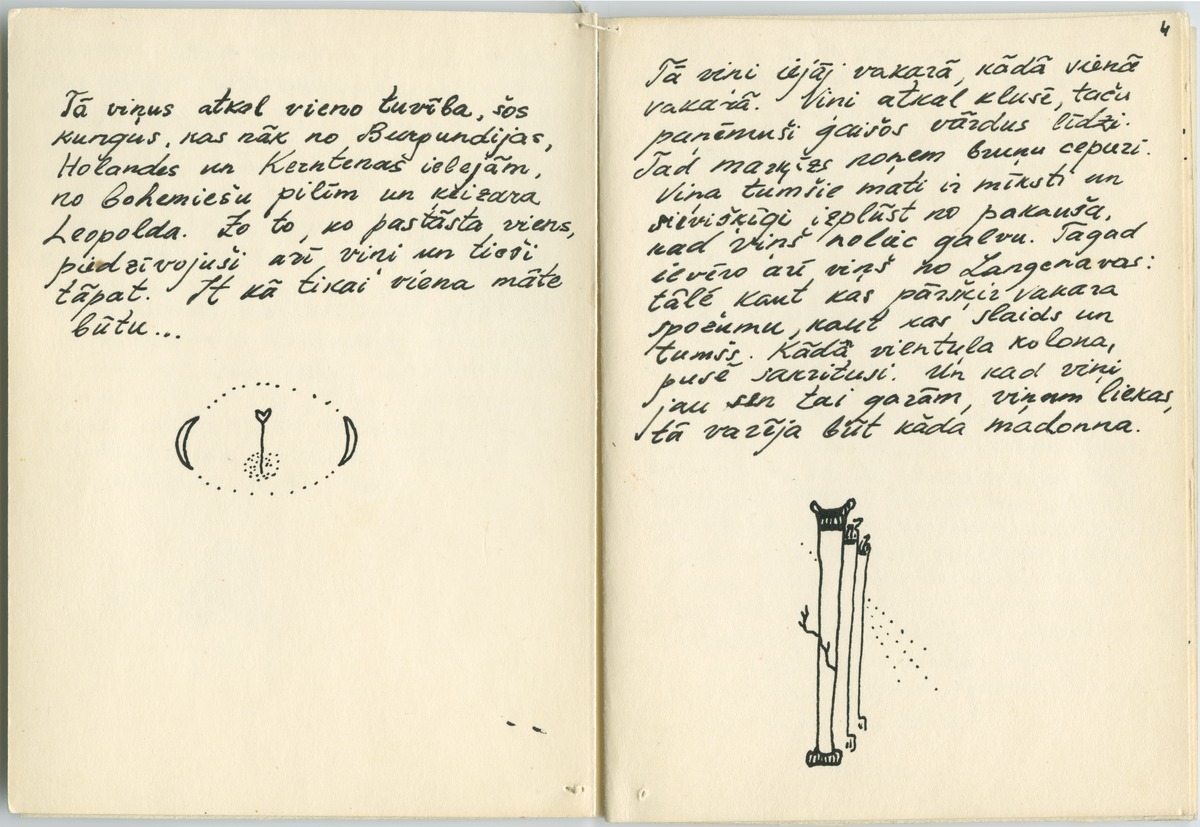 Tā viņus atkal vieno tuvība, šos
kungus, kas nāk no Burgundijas,
Holandes un Kerntenas ielejām,
no bohemiešu pilīm un ķeizara
Leopolda. Jo to, ko pastāsta viens,
piedzīvojuši arī viņi un tieši
tāpat. It kā tikai viena māte
būtu...
4
Tā viņi iejāj vakarā, kādā vienā
vakarā. Viņi atkal klusē, taču
paņēmuši gaišos vārdus līdzi.
Tad marķīzs noņem bruņu cepuri.
Viņa tumšie mati ir mīksti un
sievišķīgi izplūst no pakauša,
kad viņš noliec galvu. Tagad
ievēro arī viņš no Langenavas:
tālē kaut kas pāršķir vakara
spožumu, kaut kas slaids un
tumšs. Kāda vientuļa kolona,
pusē sakritusi. Un kad viņi
jau sen tai garām, viņam liekas,
tā varēja būt kāda madonna.